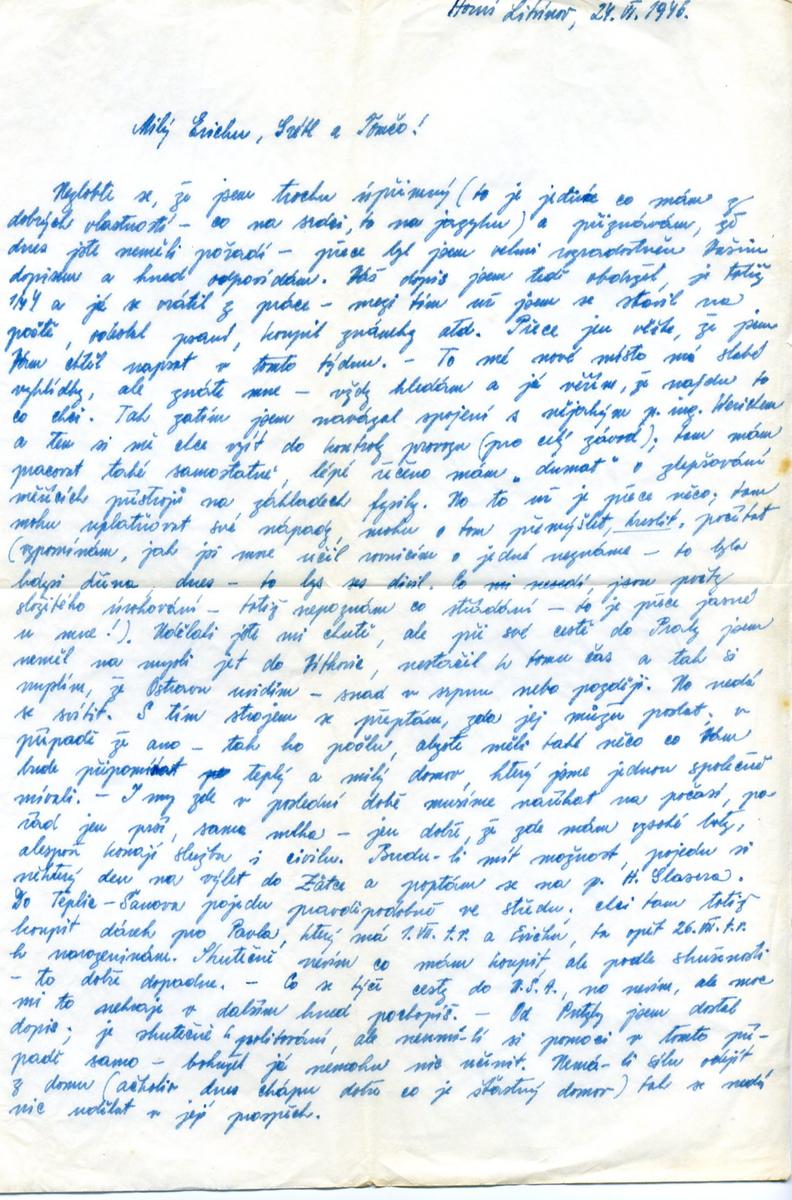 Horní Litvínov, 24. VI. 1946.
Milý Erichu, a Tomčo!
Nezlobte se, že jsem trochu úpřimný (to je jediné co mám z
dobrých vlastností - co na srdci, to na jazyku) a přiznávám, že
dnes jste neměli pořadí - přece byl jsem velmi rozradostněn Vašim
dopisem a hned odpovídám. Váš dopis jsem teď obdržel, je totiž
1/44 a já se vrátil z práce - mezi tím už jsem se stavil na
poště, odeslal psaní, koupil známky atd. Přece jen věřte, že jsem
Vám chtěl napsat v tomto týdnu. - To mé nové místo má slabé
vyhlídky, ale znáte mne - vždy hledám a já věřím, že najdu to
co chci. Tak zatím jsem navázal spojení s nějakým p. ing.
a ten si mě chce vzít do kontroly provozu (pro celý závod); tam mám
pracovat také samostatně, lépe řečeno mám "dumat" o zlepšování
měřících přístrojů na základech fysiky. No to už je přece něco; tam
mohu uplatňovat své nápady, mohu o tom přemýšlet, kreslit, počítat
(vzpomínám, jak jsi mne učil rovnicím o jedné neznámé - to byla
kdysi dřina dnes - to bys ses divil. Co mi nesedí, jsou počty
složitého úrokování - totiž nepoznám co střádání - to je přece jasné
u mne!). Udělali jste mi chutě, ale při své cestě do Prahy jsem
neměl na mysli jet do Vítkovic, nestačil k tomu čas a tak si
myslím, že Ostravu uvidím - snad v srpnu nebo později. No nedá
se svítit. S tím strojem se přeptám, zda jej můžu poslat, v
případě že ano - tak ho pošlu, abyste měli také něco co Vám
bude připomínat teplý a milý domov, který jsme jednou společně
mívali. - I my zde v poslední době musíme naříkat na počasí, po-
řád jen prší, samá mlha - jen dobře, že zde mám vysoké boty,
alespoň konají službu i civilu. Budu-li mít možnost, pojedu si
některý den na výlet do Žatce a poptám se na p. H. Glasera.
Do Teplic-Šanova pojedu pravděpodobně ve středu. chci tam totiž
koupit dárek pro Pavla, který má 1. VII. t.r. a Erichu, ty opět 26. VII. t.r.
k narozeninám. Skutečně nevím co mám koupit, ale podle slušnosti
- to dobře dopadne. - Co se týče cesty do U.S.A., no nevím, ale moc
mi to nehraje v dalším hned pochopíš. - Od jsem dostal
dopis; je skutečně k politování, ale neumí-li si pomoci v tomto pří-
padě samo - bohužel já nemohu nic učinit. Nemá-li sílu odejít
z domu (ačkoliv dnes chápu dobře co je šťastný domov) tak se nedá
nic udělat v její prospěch.